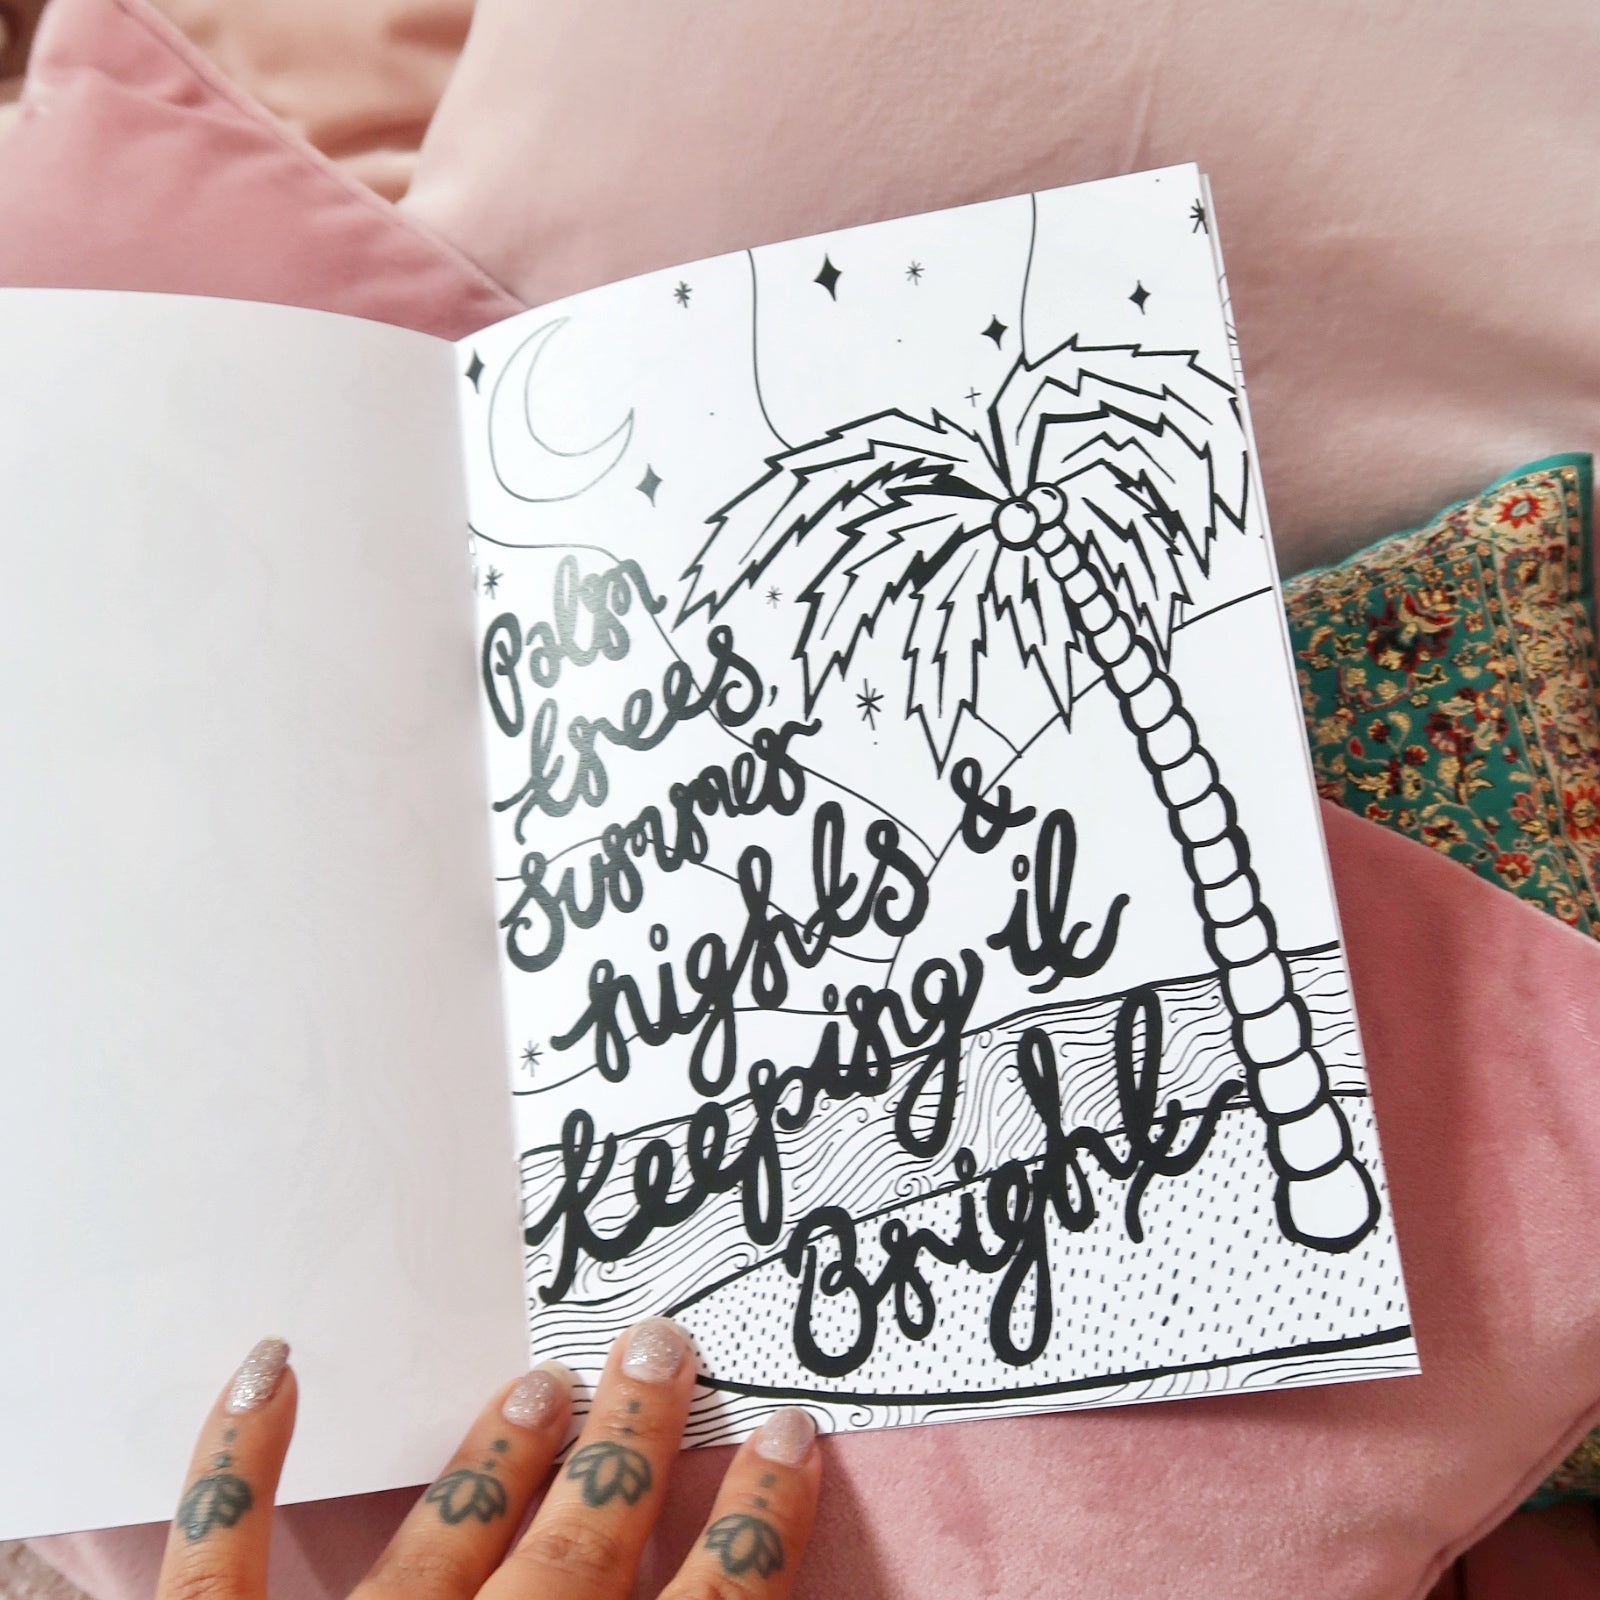 Palm
trees,
summer
nights &
keeping it
Bright